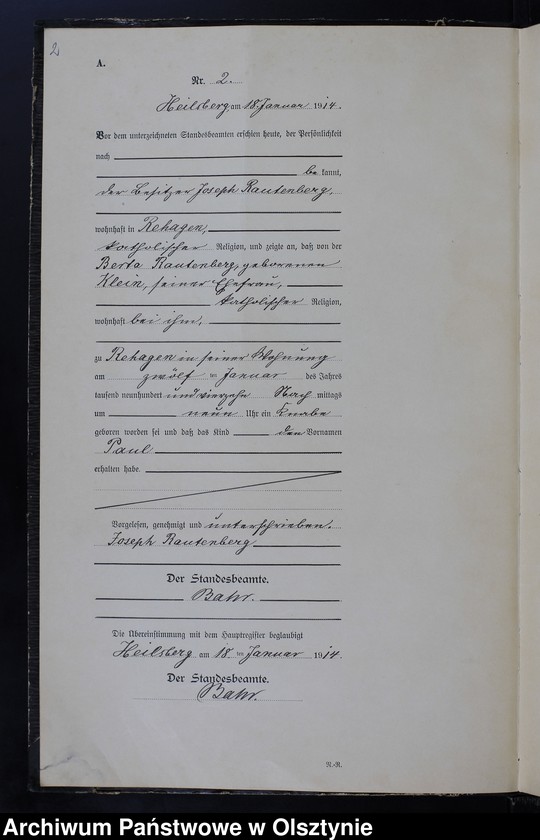 2
A.
Nr. 2.
Heilsberg am 18. Januar 1914.
Vor dem unterzeichneten Standesbeamten erschien heute, der Persönlichkeit
nach
be kannt,
der Besitzer Joseph Rautenberg,
wohnhaft in Rehagen,
katholischer Religion, und zeigte an, daß von der
Berta Rautenberg, geborenen
Klein, seiner Ehefrau,
katholischer Religion,
wohnhaft bei ihm,
zu Rehagen in seiner Wohnung
am zwölf ten Januar des Jahres
tausend neunhundert und vierzehn Nach mittags
um neun Uhr ein Knabe
geboren worden sei und daß das Kind den Vornamen
Paul
erhalten habe.
Vorgelesen, genehmigt und unterschrieben.
Joseph Rautenberg
Der Standesbeamte.
Bahr.
Die Übereinstimmung mit dem Hauptregister beglaubigt
Heilsberg am 18 ten Januar 1914.
Der Standesbeamte.
Bahr.
R.-R.
Archiwum Państwowe w Olsztynie